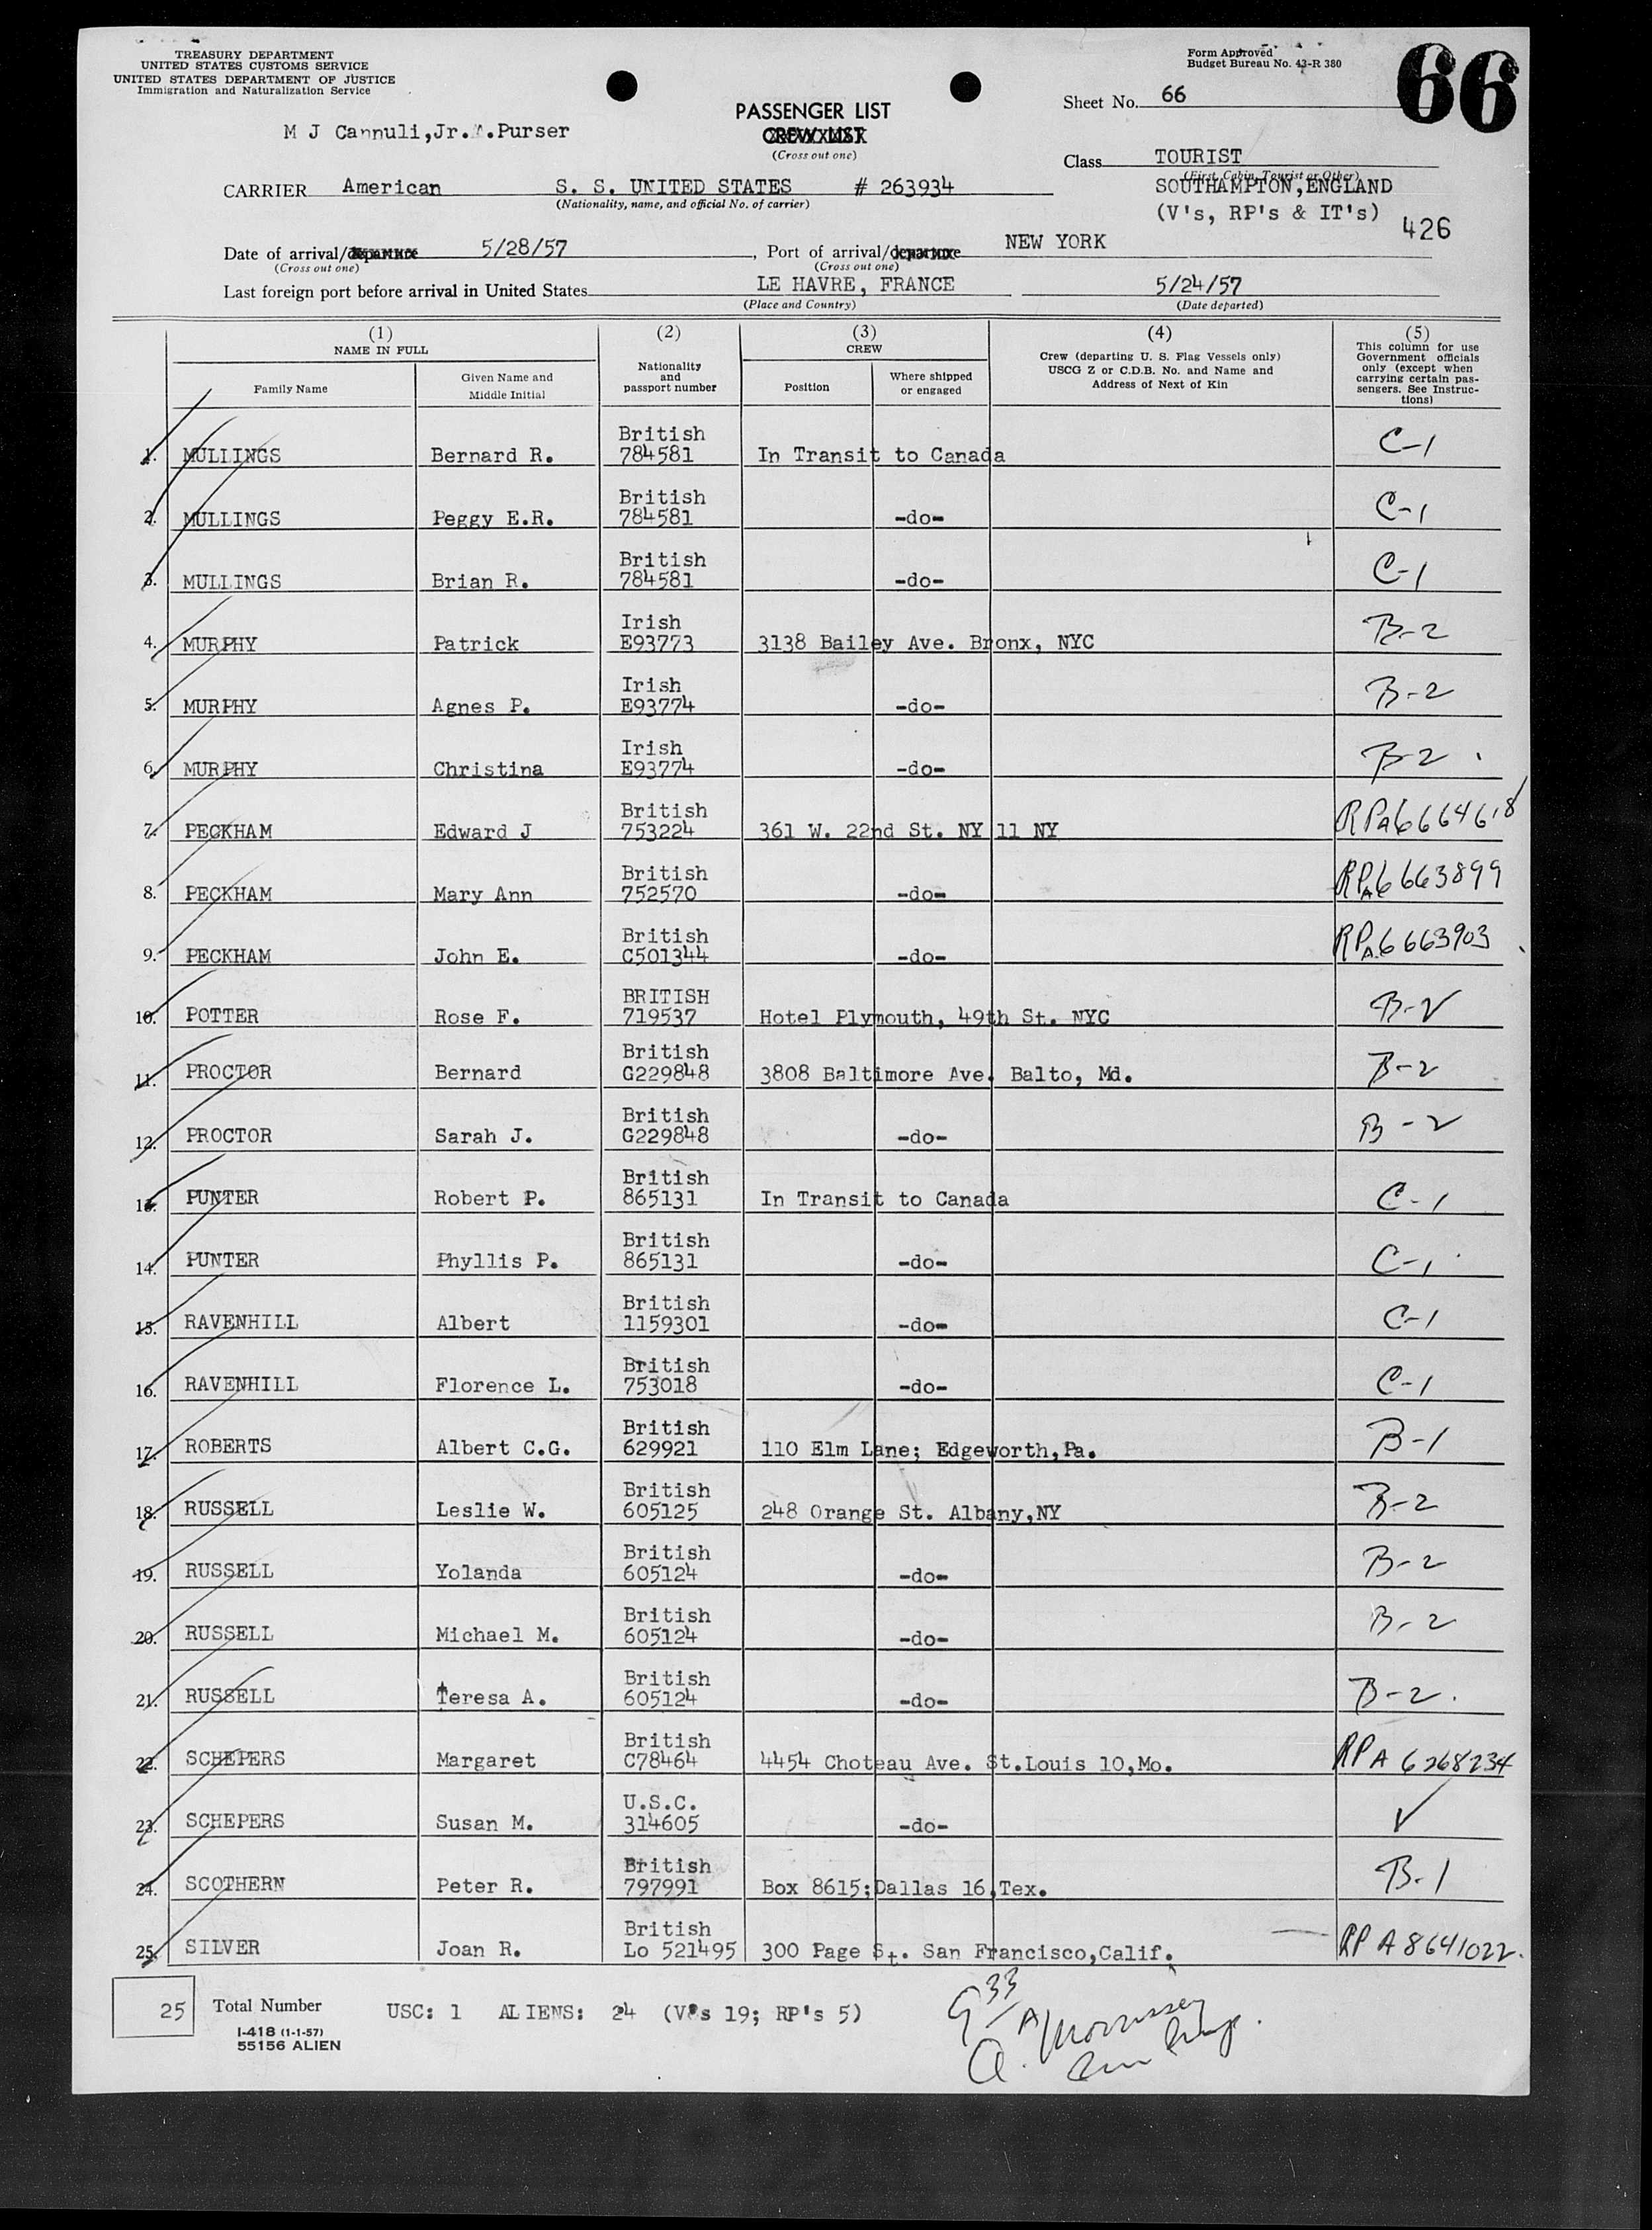 TREASURY DEPARTMENT
UNITED STATES CUSTOMS SERVICE
UNITED STATES DEPARTMENT OF JUSTICE
Immigration and Naturalization Service
Form Approved
Budget Bureau No. 43-R 380
66
Sheet No. 66
M J Cannuli,Jr. .Purser
PASSENGER LIST
CREW LIST
(Cross out one)
Class TOURIST
(First, Cabin, Tourist or Other)
CARRIER American S. S. UNITED STATES # 263934
(Nationality, name, and official No. of carrier)
SOUTHAMPTON,ENGLAND
(V's, RP's & IT's)
426
Date of arrival/departure 5/28/57, Port of arrival/departure NEW YORK
(Cross out one) (Cross out one)
Last foreign port before arrival in United States LE HAVRE, FRANCE 5/24/57
(Place and Country) (Date departed)
(1) NAME IN FULL
Family Name
Given Name and Middle Initial
(2) Nationality and passport number
(3) CREW
Position
Where shipped or engaged
(4) Crew (departing U. S. Flag Vessels only) USCG Z or C.D.B. No. and Name and Address of Next of Kin
(5) This column for use Government officials only (except when carrying certain passengers. See Instructions)
1. MULLINGS Bernard R. British 784581 In Transit to Canada C-1
2. MULLINGS Peggy E.R. British 784581 -do- C-1
3. MULLINGS Brian R. British 784581 -do- C-1
4. MURPHY Patrick Irish E93773 3138 Bailey Ave. Bronx, NYC B-2
5. MURPHY Agnes P. Irish E93774 -do- B-2
6. MURPHY Christina Irish E93774 -do- B-2
7. PECKHAM Edward J British 753224 361 W. 22nd St. NY 11 NY RPA6664618
8. PECKHAM Mary Ann British 752570 -do- RPA6663899
9. PECKHAM John E. British C501344 -do- RPA6663903
10. POTTER Rose F. BRITISH 719537 Hotel Plymouth, 49th St. NYC B-2
11. PROCTOR Bernard British G229848 3808 Baltimore Ave. Balto, Md. B-2
12. PROCTOR Sarah J. British G229848 -do- B-2
13. PUNTER Robert P. British 865131 In Transit to Canada C-1
14. PUNTER Phyllis P. British 865131 -do- C-1
15. RAVENHILL Albert British 1159301 -do- C-1
16. RAVENHILL Florence L. British 753018 -do- C-1
17. ROBERTS Albert C.G. British 629921 110 Elm Lane; Edgeworth,Pa. B-1
18. RUSSELL Leslie W. British 605125 248 Orange St. Albany,NY B-2
19. RUSSELL Yolanda British 605124 -do- B-2
20. RUSSELL Michael M. British 605124 -do- B-2
21. RUSSELL Teresa A. British 605124 -do- B-2
22. SCHEPERS Margaret British C78464 4454 Choteau Ave. St.Louis 10,Mo. RPA 6268234
23. SCHEPERS Susan M. U.S.C. 314605 -do- ✓
24. SCOTHERN Peter R. British 797991 Box 8615;Dallas 16,Tex. B-1
25. SILVER Joan R. British Lo 521495 300 Page St. San Francisco,Calif. RP A8641022
25 Total Number USC: 1 ALIENS: 24 (V's 19; RP's 5)
I-418 (1-1-57)
55156 ALIEN